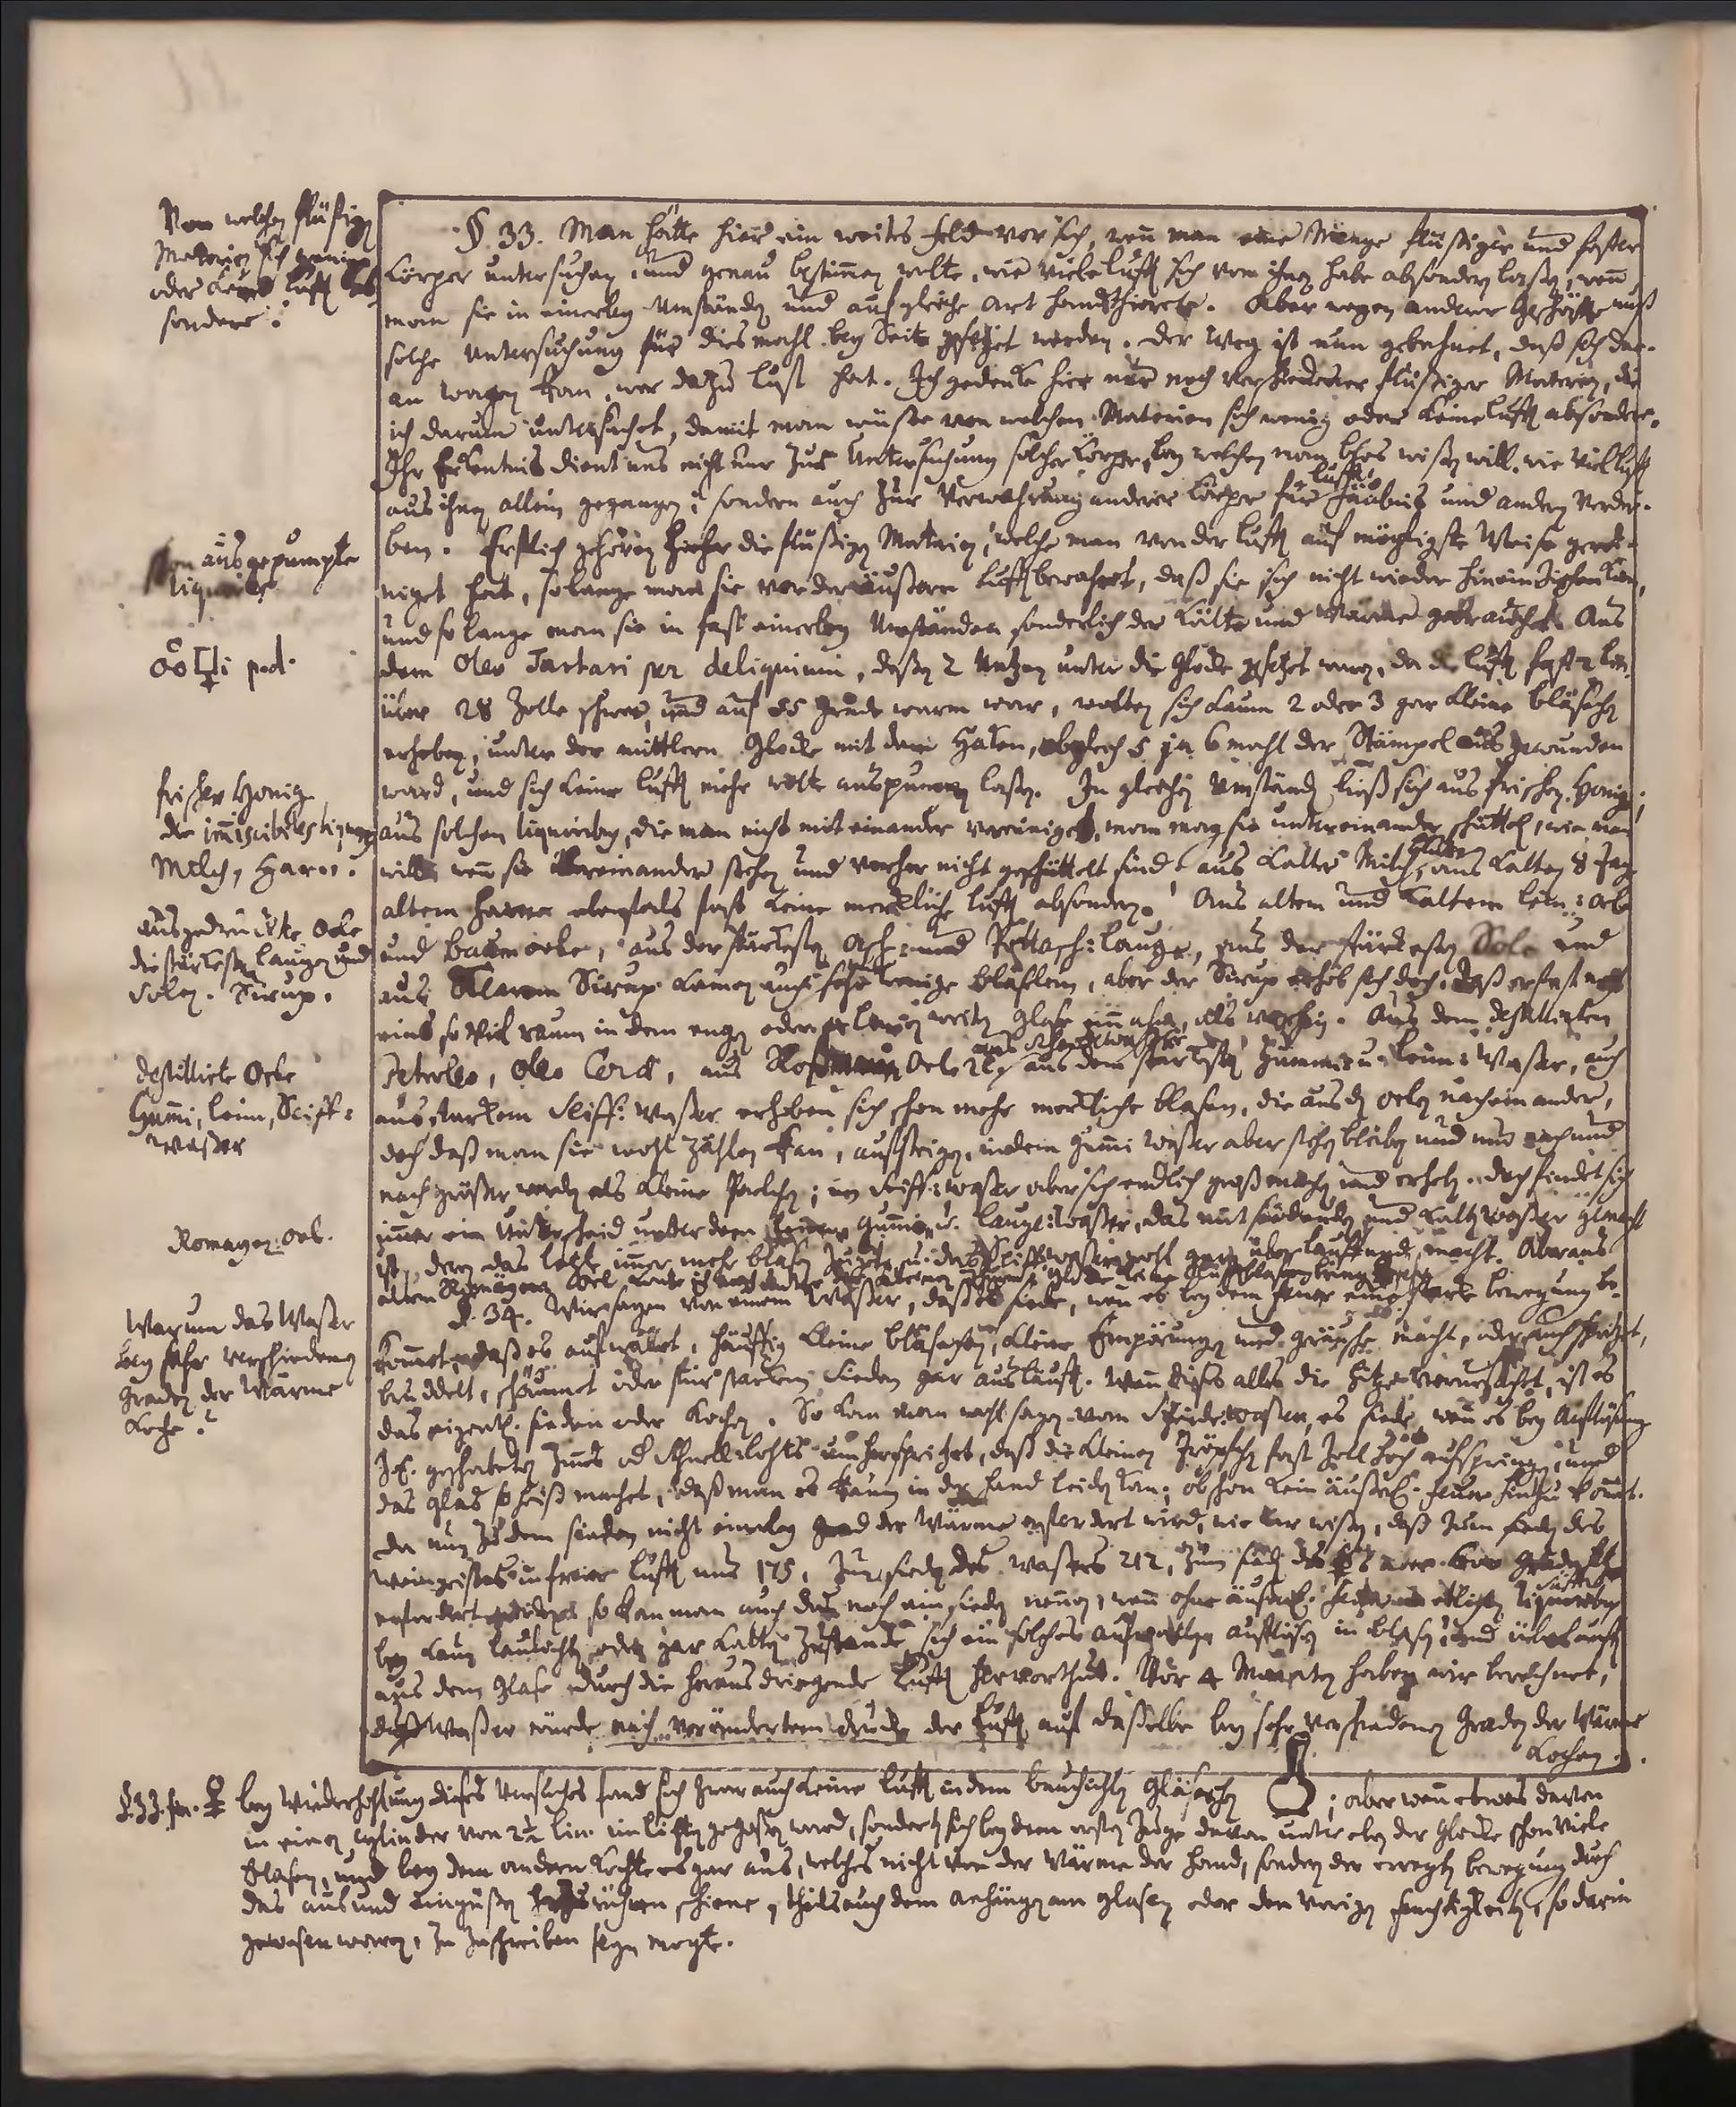 Von welchen flüßigen
Materien sich wenig
oder keine Lufft ab
sondere?
§. 33. Man hätte hier ein weites Feld vor sich, wenn man eine Menge flüßiger und fester
Körper untersuchen, und genau bestimmen wolte, wie viele Lufft sich von ihnen habe absondern laßen, wenn
man sie in einerley Umständen und auf gleiche Art handthierete. Aber wegen anderer Geschäffte muß
solche Untersuchung für diesmahl bey Seite gesetzet werden. Der Weg ist nun gebahnet, daß sich dar-
an wagen kan, wer dazu Lust hat. Ich gedenke hier nur noch verschiedener flüßiger Materien, die
ich darum untersuchet, damit man wüste von welchen Materien sich wenig oder keine Lufft absondere.
Ihr Erkentnis dient uns nicht nur zur Untersuchung solcher Körper, bey welchen man wißen will, wie viel Lufft
aus ihnen allein gegangen; sondern auch zur Verwahrung anderer Körper für Fäulnis und andern Verder-
ben. Erstlich gehören hieher die flüßigen Materien, welche man von der Lufft auf möglichste Weise gerei-
niget hat, so lange man sie vor der äußern Lufft bewahret, daß sie sich nicht wieder hinein ziehen kan,
und so lange man sie in fast einerley Umständen sonderlich der Kälte und Wärme gebrauchet. Aus
dem Oleo Tartari per deliquium, deßen 2 Untzen unter die Glocke gesetzet waren, da die Lufft fast 2 Lin.
über 28 Zolle schwer, und auf 55 Grade warm war, wolten sich kaum 2 oder 3 gar kleine Bläschen
erheben, unter der mittlern Glocke mit dem Haken, obgleich 5 ja 6 mahl der Stämpel ausgewunden
ward, und sich keine Lufft mehr wolte auspumpen laßen. In gleichen Umständen ließ sich aus frischen Honig,
aus solchen liquoribus, die man nicht mit einander vereiniget, man mag sie untereinander schütteln, wie man
will, wenn sie übereinander stehen und vorher nicht geschüttelt sind, aus kalter Milch, aus kalten 8 Tage
altem Harne ebenfals fast keine merckliche Lufft absondern. Aus altem und kaltem Lein: Oele
und Baumoele, aus der stärckesten Asch: und Pottasch: Lauge, aus der stärckesten Sole und
aus klarem Sirup kamen auch sehr wenige Bläslein, aber der Sirup erhob sich doch, daß er fast noch
eins so viel raum in dem engen oder weiten Glase einnahm, als vorhin. Aus dem destillirten
Peteroleo, Oleo Cerae, aus Oele aus dem stärcksten Gummi: u. Leim: Waßer, auch
aus starckem Seiff: Waßer erhoben sich schon mehr merckliche Blasen, die aus den Oelen nacheinander,
doch daß man sie wohl zählen kan, aufsteigen, in dem Gummi Waßer aber stehen bleiben und nur nach und
nach größer werden als kleine Perlchen; im Seiff: waßer aber sich endlich groß machen und erheben. Doch findet sich
immer ein Unterscheid unter dem Gummi u. Lauge: Waßer, das mit siedenden und kalten Waßer gemacht
ist, denn das letzte immer mehr Blasen zeigte, u. das Seiffwaßer wohl gar überlauffend macht. Aber aus
altem
§. 34. Wir sagen von einem Waßer, daß es siede, wenn es bey dem Feuer eine starcke Bewegung be-
kommet, daß es aufwallet, häuffig kleine Bläschen, kleine Empörungen und Geräusche macht, oder auch spritzet,
bruddelt, schäumet oder für starckem Sieden gar ausläuft. Wenn dieses alles die Hitze verursachet, ist es
das eigentl. sieden oder kochen. So kan man wohl sagen vom Scheide: waßer, es siede, wenn es bey Auflösung
geschabeten Zinns umherspritzet, daß die kleinen Tröpfchen fast Zoll hoch aufspringen, und
das Glas so heiß machet, daß man es kaum in der Hand leiden kan; obschon kein äußerl. Feuer hinzu komt.
Da nun zu dem sieden nicht einerley Grad der Wärme erfordert wird, wie wir wißen, daß zum sieden des
Weingeistes in freier Lufft nur 175, zum sieden des Waßers 212, zum sieden des ☿ aber 600 Grade
erfordert werden; so kan man auch das noch ein sieden nennen, wenn ohne äußerl. Feuer liquoribus
bey kaum laulichten oder gar kalten Zustande sich ein solches aufwallen auflösen in Blasen und überlauffen
aus dem Glase durch die herausdringende Lufft hervorthut. Vor 4 Monaten haben wir berechnet,
daß Waßer würde nach verändertem Drucke der Lufft auf daßelbe bey sehr verschiedenen Graden der Wärme
kochen.
von ausgepumpte
liquoribus
frischer Honig
die immiscibiles liquores
Milch, Harn.
ausgedrückte Oele
die stärksten Laugen und
Solen. Sirup.
destillirte Oele
Gummi, Leim, Seiff:
waßer
Romagen: Oel.
Warum das Waßer
bey sehr verschiedenen
Graden der Wärme
koche?
§. 33. bey Wiederhohlung dieses Versuches fand sich zwar auch keine Lufft in dem bauchichten Gläschen ; aber wenn etwas davon
in einen Cylinder von 2½ Lin. im lichten gegoßen ward, sonderte sich bey dem ersten Zuge davon unter eben der Glocke schon viele
Blasen, und bey dem andern kochte es gar aus, welches nicht von der Wärme der Hand, sondern der erregten Bewegung durch
das aus und eingießen herzurühren schiene, theils auch dem anhängen am Glase oder den vorigen Feuchtigkeiten, so darin
gewesen waren, zu zuschreiben seyn mogte.